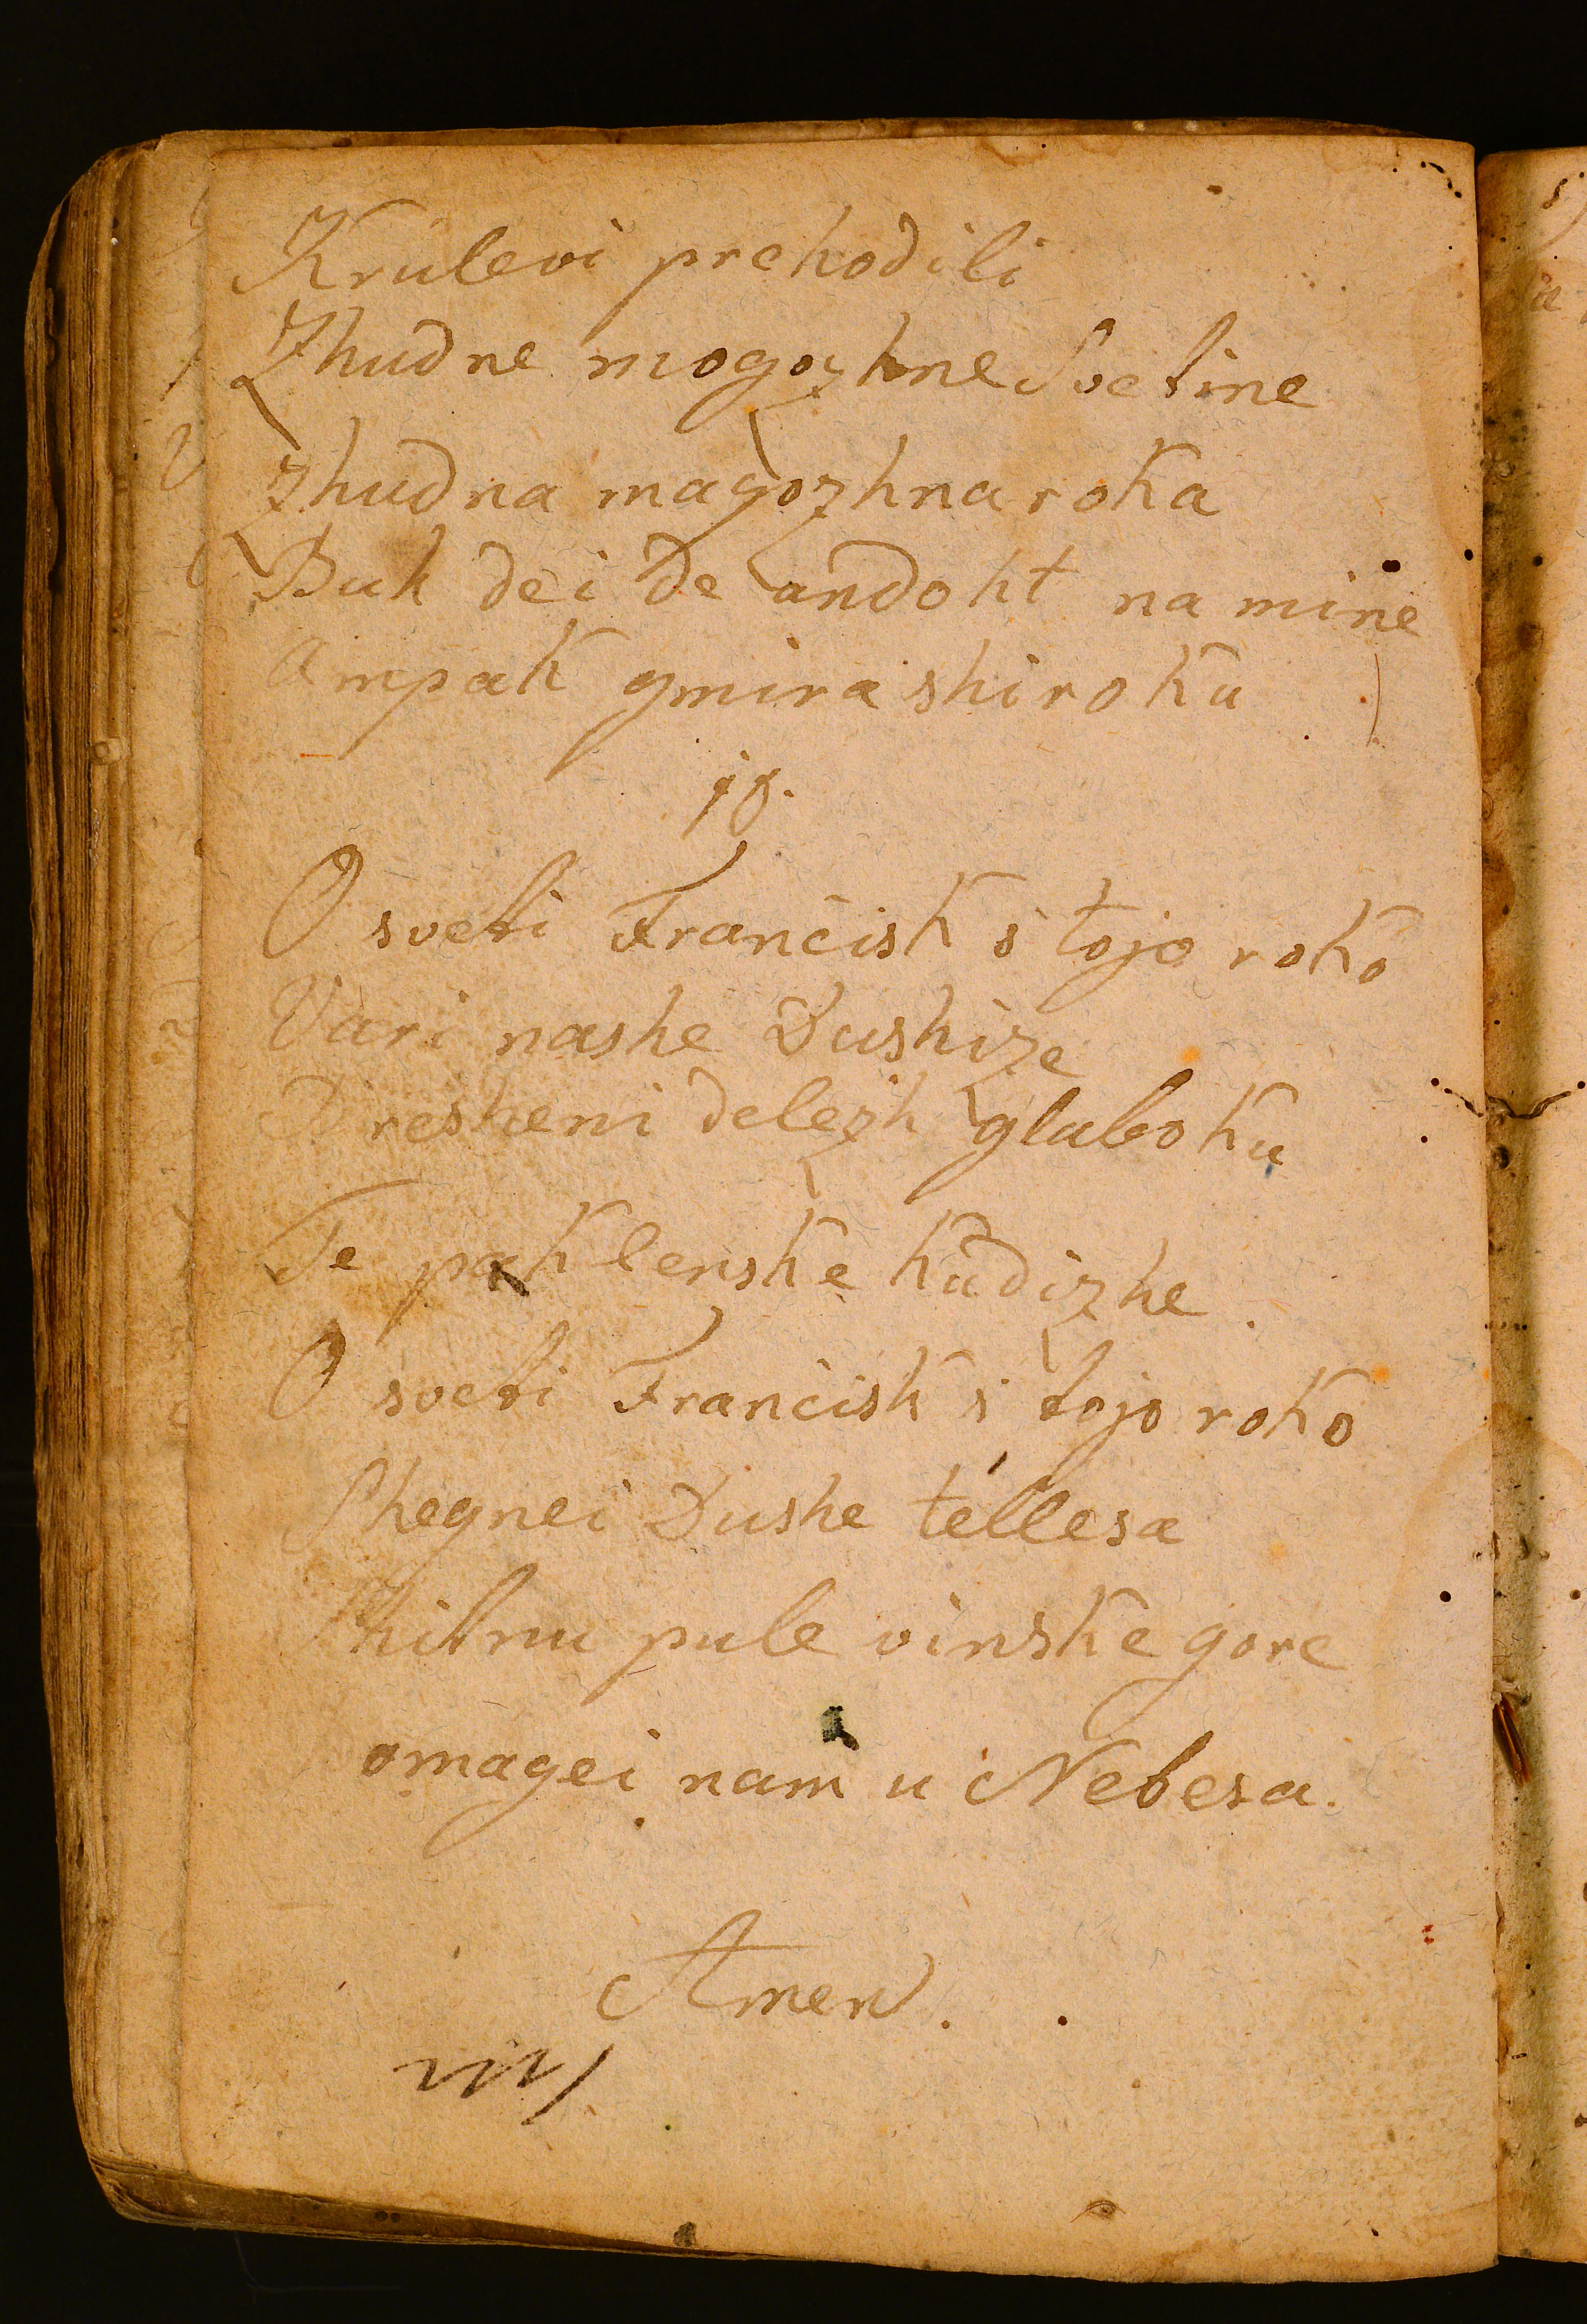 Krulevi prehodili
Zhudne mogozhne Svetine
Zhudna magozhna roka
Buh dei de andoht na mine
Ampak gmira shiroku
10.
O sveti Francisk s' tojo roko
Vari nashe Dushize
Presheni delezh gluboku
Te paklenske kudizhe.
O sveti Francisk s' tojo roko
Shegnei Dushe tellesa
Shitnu pule vinske gore
omagei nam u Nebesa.
Amen.